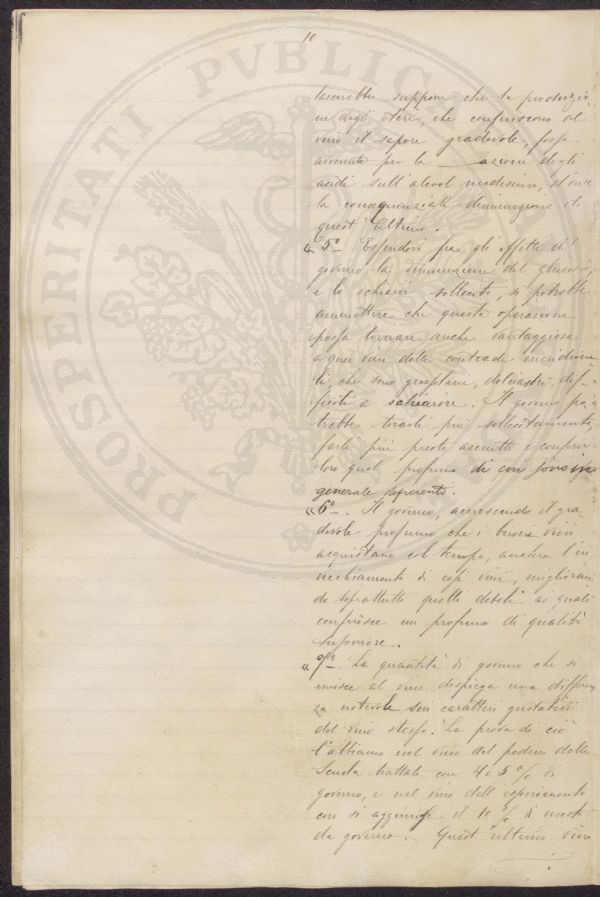 10
lascerebbe supporre che la produzio-
ne degli eteri, che conferiscono al
vino il sapore gradevole, fosse
avvenuta per la azione degli
acidi sull'alcool medesimo, d'onde
la consequenziale diminuzione di
quest'ultimo.
« 5º — Essendovi fra gli effetti del
governo la diminuzione del glucosio,
e lo schiarir sollecito, si potrebbe
ammettere che questa operazione
possa tornare anche vantaggiosa
a quei vini delle contrade meridiona-
li, che sono grossolani, dolciastri, dif-
ficili a schiarire. Il governo po-
trebbe tirarli più sollecitamente,
farli più presto asciutti e conferir
loro quel profumo di cui sono in
generale deficienti.
« 6º —. Il governo, accrescendo il gra-
devole profumo che i buoni vini
acquistano col tempo, accelera l'in-
vecchiamento di essi vini, miglioran-
do soprattutto quelli deboli ai quali
conferisce un profumo di qualità
superiore.
« 7º —. La quantità di governo che si
unisce al vino dispiega una differen-
za notevole sui caratteri gustativi
del vino stesso. La prova di ciò
l'abbiamo nel vino del podere della
Scuola trattato con 4 o 5 % di
governo, e nel vino dell'esperimento
cui si aggiunse il 10 % di mosto
da governo. Quest'ultimo vino
PROSPERITATI PVBLICAE